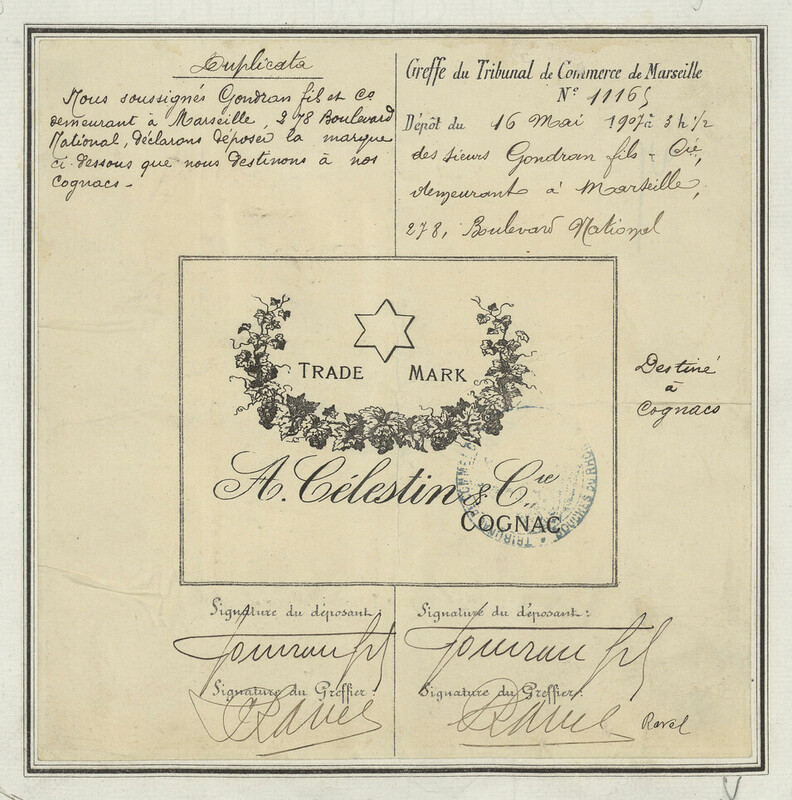 Duplicata
Nous soussignés Gondran fils et Co
demeurant à Marseille, 278 Boulevard
National, déclarons déposer la marque
ci-dessous que nous destinons à nos
Cognacs -
Greffe du Tribunal de Commerce de Marseille
N° 11165
Dépôt du 16 Mai 1907 à 3 h 1/2
des sieurs Gondran fils - Cie,
demeurant à Marseille,
278, Boulevard National
TRADE MARK
A. Célestin & Cie
COGNAC
Destiné
à
Cognacs
Signature du déposant:
Signature du déposant:
Gondran fils
Gondran fils
Signature du Greffier:
Signature du Greffier:
Ravel
Ravel
Ravel